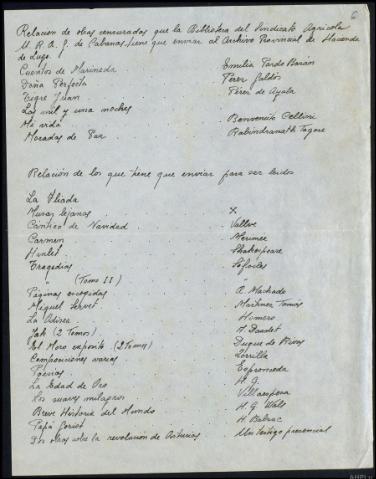 6
Relación de obras censuradas que la Biblioteca del Sindicato Agricola
U. R. A. P. de Cabanas, tiene que enviar al Archivo Provincial de Hacienda
de Lugo.
Cuentos de Marineda Emilia Pardo Bazán
Doña Perfecta Pérez Galdós
Tigre Juan Pérez de Ayala
Las mil y una noches
Mi vida Benvenuto Cellini
Moradas de Paz Rabindranath Tagore
Relación de los que tiene que enviar para ser leidos
La Iliada
Musas lejanas X
Cántico de Navidad Vallvé
Carmen Merimee
Hanlet Shakespeare
Tragedias Sófocles
" (Tomo II) "
Páginas escogidas A. Machado
Miguel Servet Martinez Tomas
La Odisea Homero
Jak (2 Tomos) A. Daudet
El Moro expósito (2 Tomos) Duque de Rivas
Composiciones varias Zorrilla
Poesias Espronceda
La Edad de Oro H. G.
Los nueve milagros Villaespesa
Breve Historia del Mundo H. G. Wels
Papá Goriot H. Balzac
Dos obras sobre la revolución de Asturias Un testigo presencial